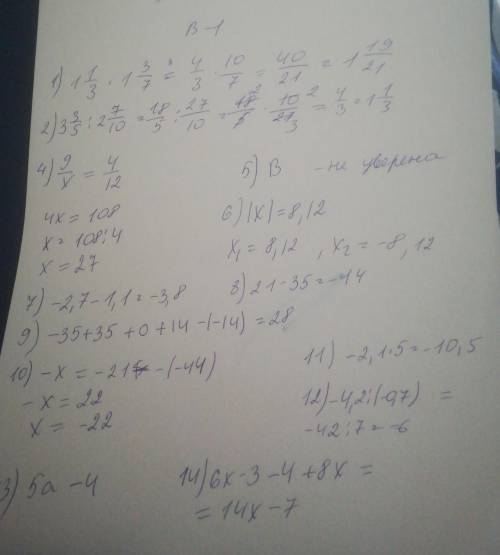 В-1
1) 1 1/3 · 1 3/7 = 4/3 · 10/7 = 40/21 = 1 19/21
2) 3 3/5 : 2 7/10 = 18/5 : 27/10 = 18/5 · 10/27 = 4/3 = 1 1/3
4) 9/x = 4/12
4x = 108
x = 108:4
x = 27
5) В - не уверена
6) |x| = 8,12
x₁ = 8,12 , x₂ = -8,12
7) -2,7-1,1=-3,8
8) 21-35=-14
9) -35+35+0+14-(-14)=28
10) -x = -21 -(-44)
-x = 22
x = -22
11) -2,1·5=-10,5
12) -4,2:(-0,7) =
-42:7=-6
3) 5a-4
14) 6x-3-4+8x =
= 14x-7